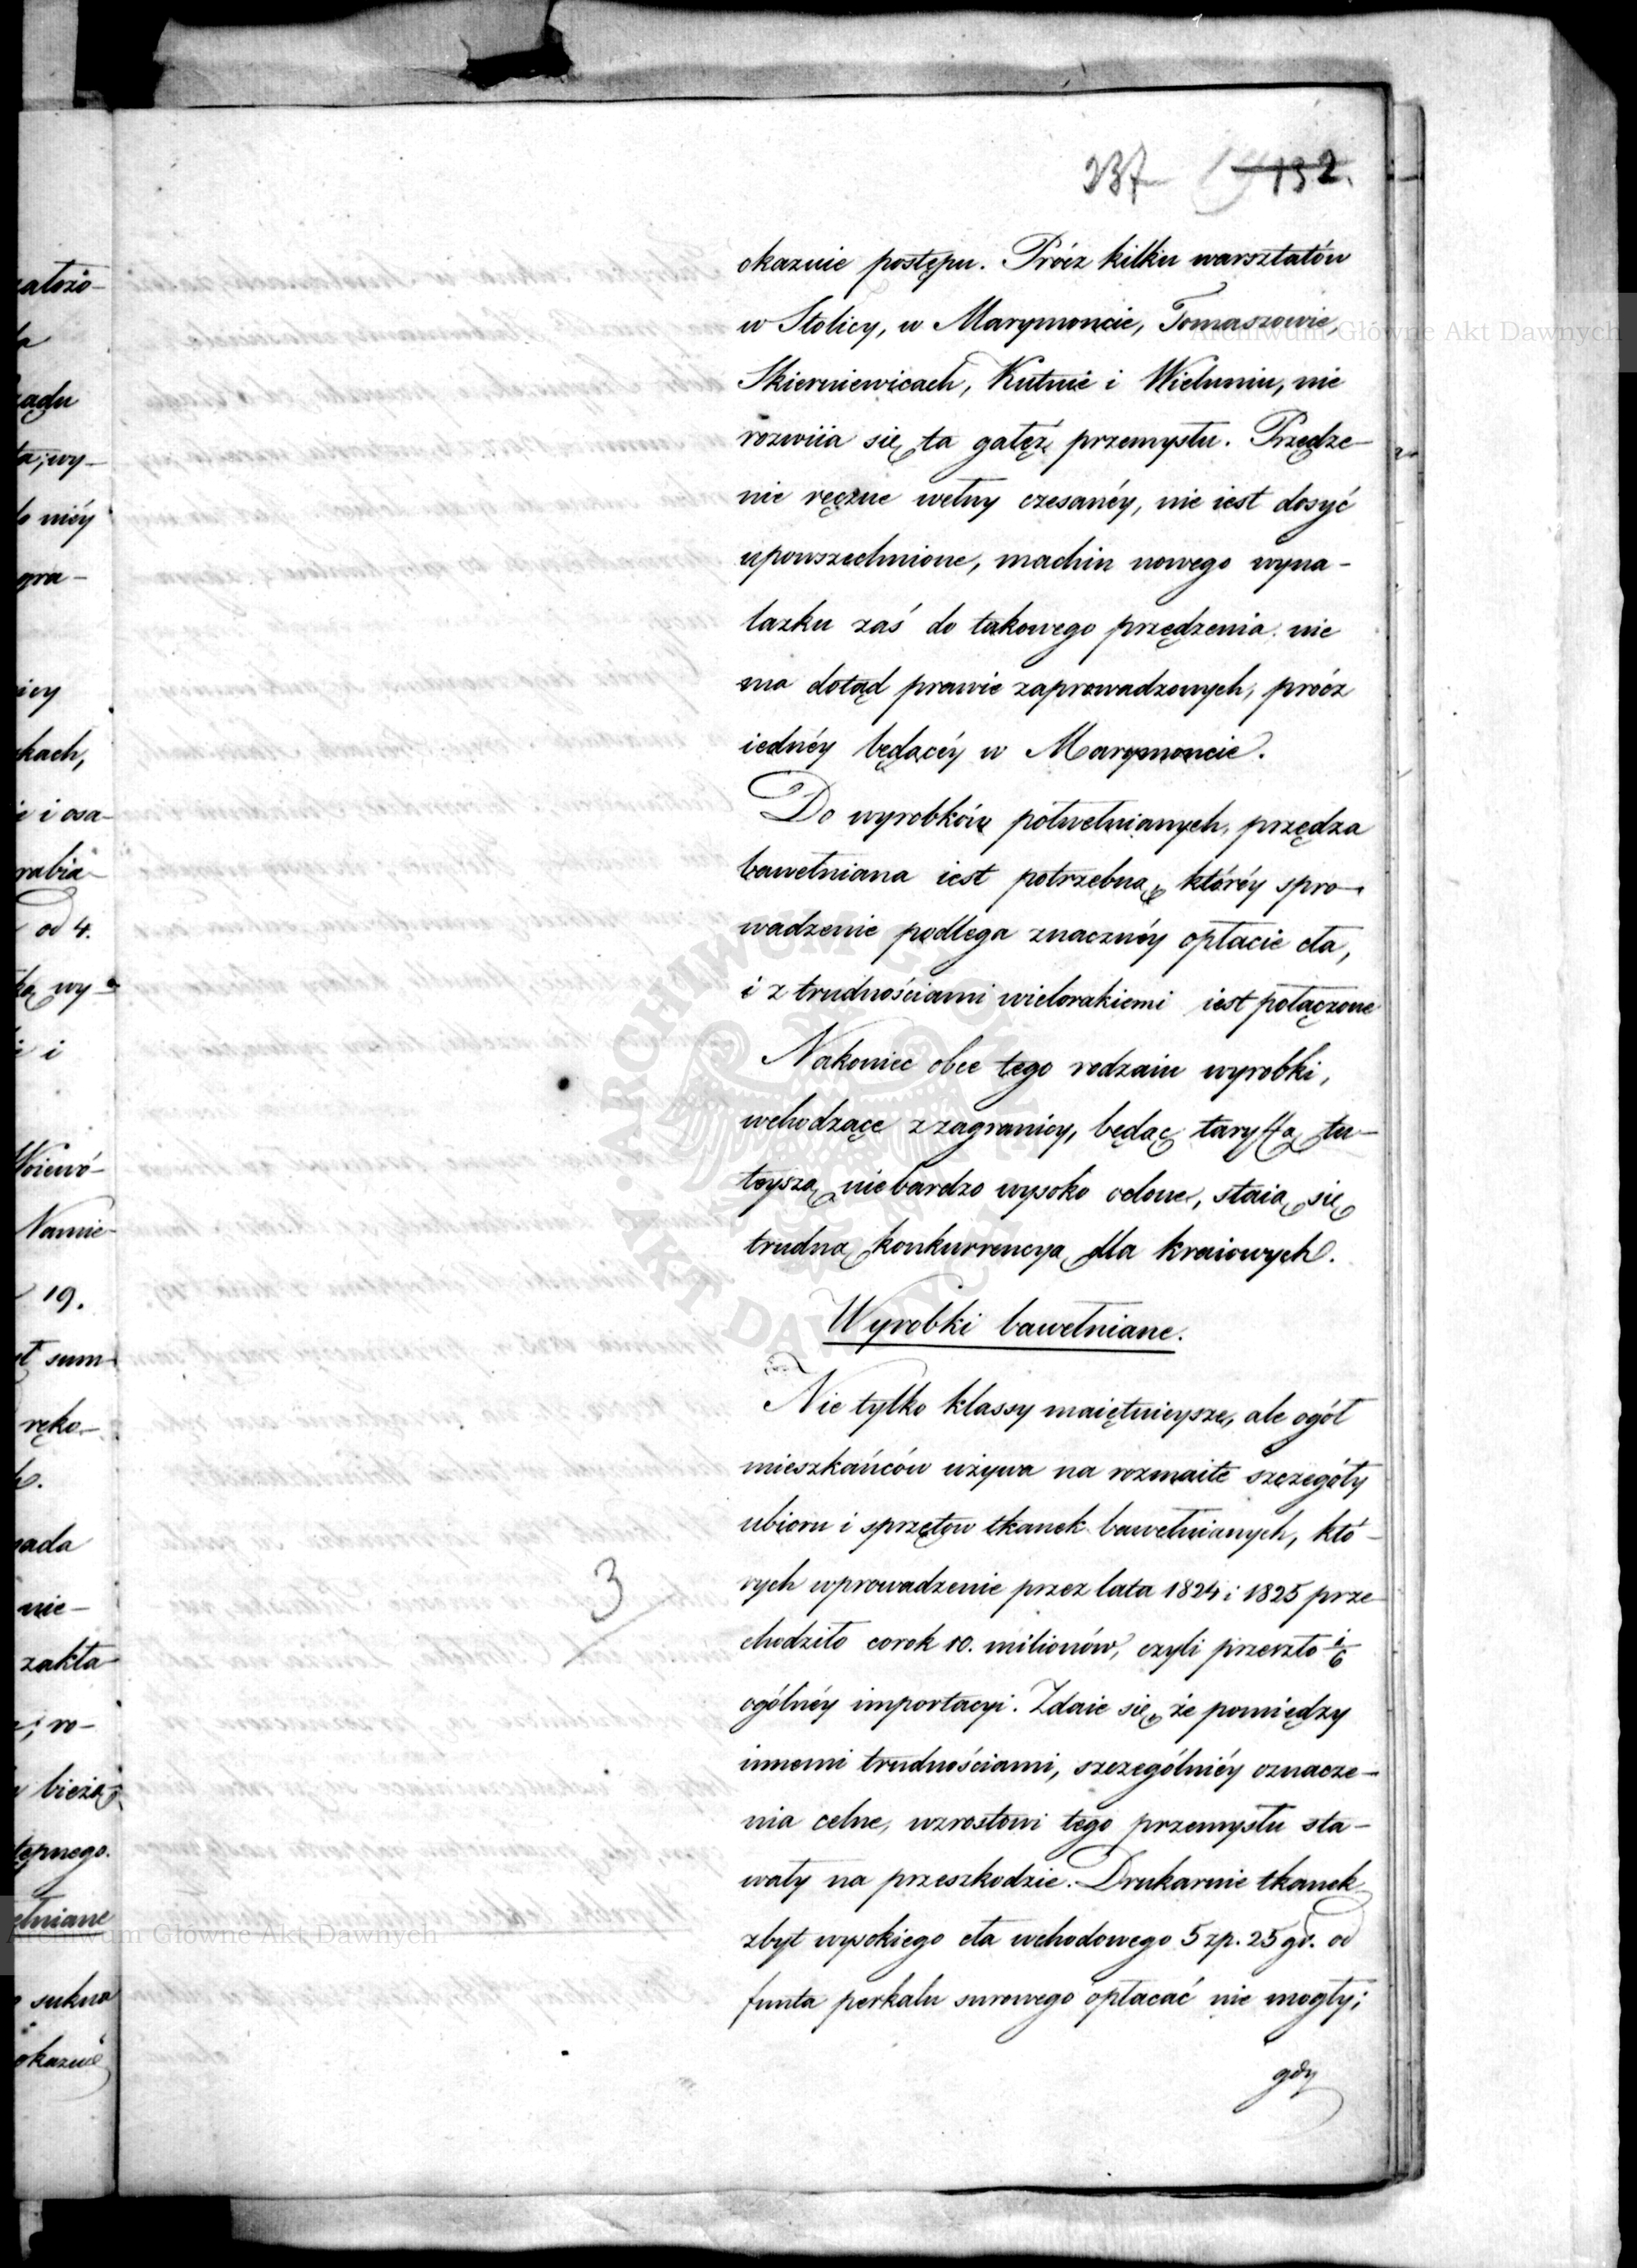 237 132.
okazuie postępu. Prócz kilku warsztatów
w Stolicy, w Marymoncie, Tomaszowie,
Skierniewicach, Kutnie i Wieluniu, nie
rozwiia się ta gałęź przemysłu. Przędze-
nie ręczne wełny czesanéy, nie iest dosyć
upowszechnione, machin nowego wyna-
lazku zaś do takowego przędzenia nie
ma dotąd prawie zaprowadzonych, prócz
iednéy będącéy w Marymoncie.
Do wyrobków półwełnianych, przędza
bawełniana iest potrzebną, któréy spro-
wadzenie podlega znacznéy opłacie cła,
i z trudnościami wielorakiemi iest połączone
Nakoniec obce tego rodzaiu wyrobki,
wchodzące z zagranicy, będąc taryffą tu-
teyszą niebardzo wysoko oclone, staią się
trudną konkurrencyą dla kraiowych.
Wyrobki bawełniane.
Nie tylko klassy maiętnieysze, ale ogół
mieszkańców używa na rozmaite szczegóły
ubioru i sprzętow tkanek bawełnianych, któ-
rych wprowadzenie przez lata 1824 i 1825 prze-
chodziło corok 10. milionów, czyli przeszło 1/6
ogólnéy importacyi. Zdaie się, że pomiędzy
innemi trudnościami, szczególniéy oznacze-
nia celne, wzrostowi tego przemysłu sta-
wały na przeszkodzie. Drukarnie tkanek
zbyt wysokiego cła wchodowego 5 zp. 25 gr. od
funta perkalu surowego opłacać nie mogły;
gdy
3
załoźo-
ła
ządu
ta; wy-
do niéy
gra-
icy
kach,
i i osa-
rabia-
od 4.
wy-
i i
Woiewó-
Namie-
19.
sum-
ręko-
pada
nie-
zakła-
ro-
bieżą-
tępnego.
ełniane
sukna
okazuie
Archiwum Główne Akt Dawnych
Archiwum Główne Akt Dawnych
ARCHIWUM GŁÓWNE AKT DAWNYCH